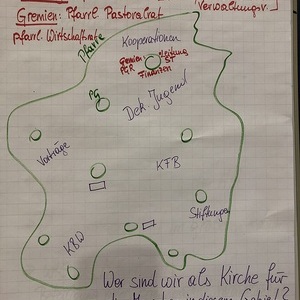 Gremien: Pfarrl Pastoralrat
Verwaltungsr.]
pfarrl. Wirtschaftsrate
Pfarre
Kooperationen
Gremien
Leitung
PGR
ST
Finanzen
PG
Dek Jugend
Vorträge
KFB
Stiftungen
KBW
Wer sind wir als Kirche für
die Menschen in diesem Gebiet?